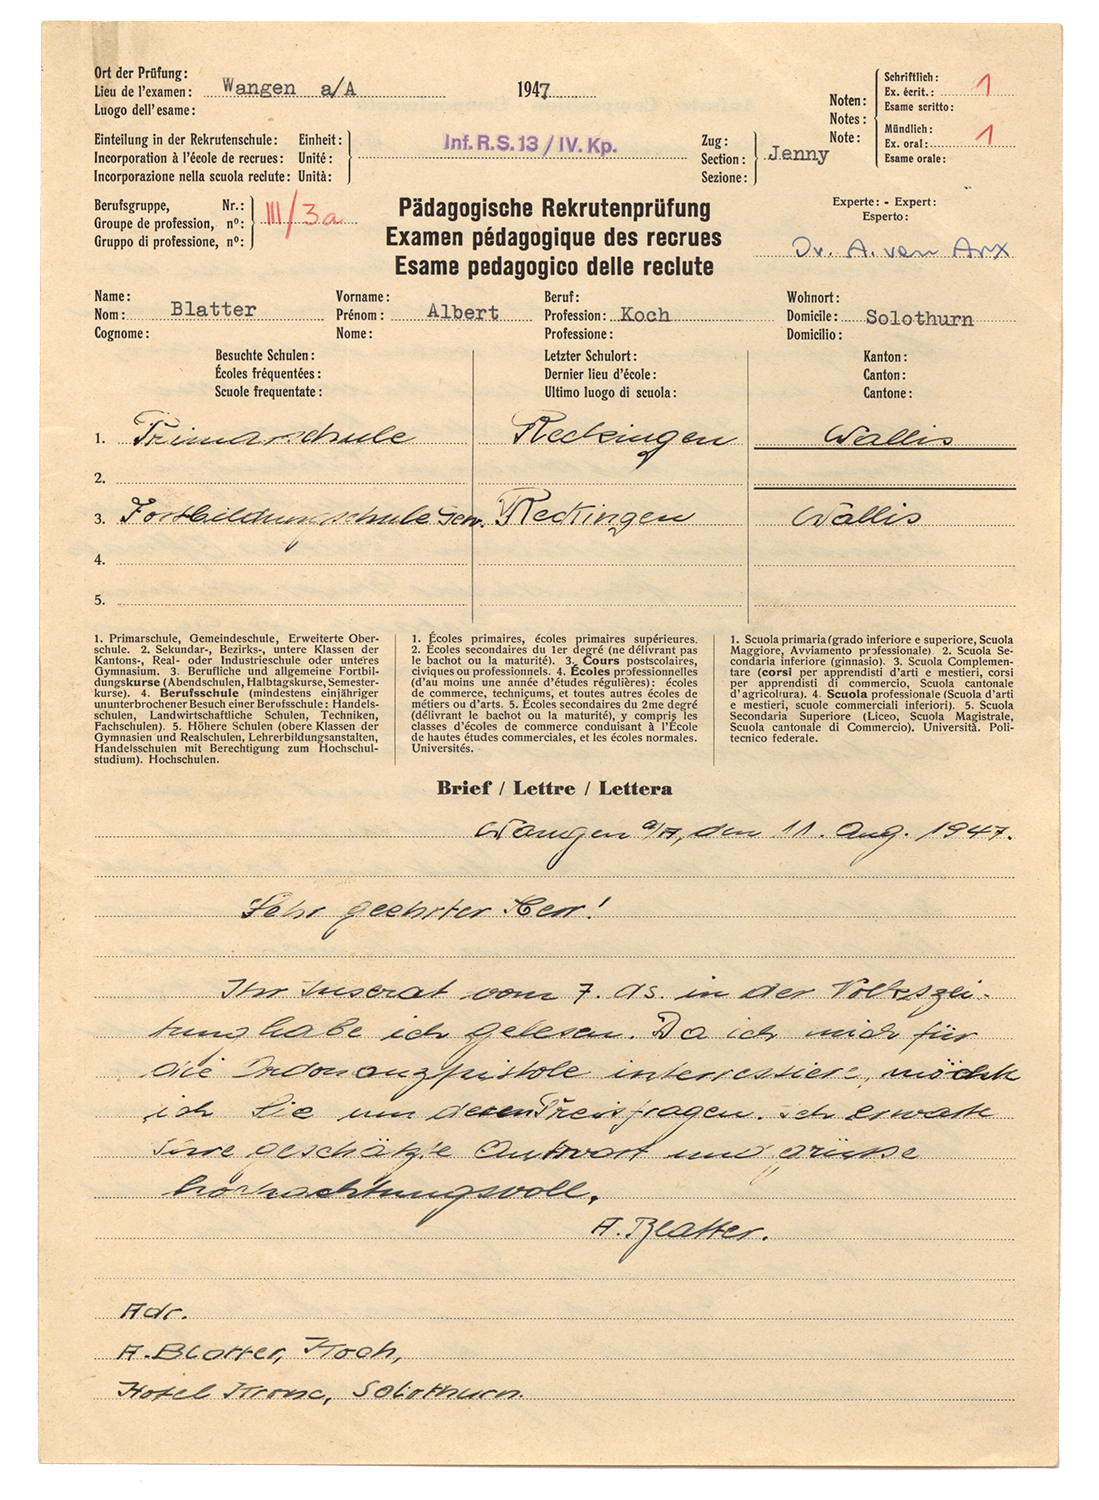 Ort der Prüfung:
Lieu de l'examen: Wangen a/A 1947
Luogo dell'esame:
Noten:
Notes:
Note:
Schriftlich:
Ex. écrit.: 1
Esame scritto:
Mündlich:
Ex. oral: 1
Esame orale:
Einteilung in der Rekrutenschule: Einheit:
Incorporation à l'école de recrues: Unité: Inf. R.S. 13 / IV. Kp.
Incorporazione nella scuola reclute: Unità:
Zug:
Section: Jenny
Sezione:
Berufsgruppe, Nr.:
Groupe de profession, nº: III/3a
Gruppo di professione, nº:
Pädagogische Rekrutenprüfung
Examen pédagogique des recrues
Esame pedagogico delle reclute
Experte: - Expert:
Esperto:
Dr. A. von Arx
Name: Vorname: Beruf: Wohnort:
Nom: Blatter Prénom: Albert Profession: Koch Domicile: Solothurn
Cognome: Nome: Professione: Domicilio:
Besuchte Schulen: Letzter Schulort: Kanton:
Écoles fréquentées: Dernier lieu d'école: Canton:
Scuole frequentate: Ultimo luogo di scuola: Cantone:
1. Primarschule Reckingen Wallis
2.
3. Fortbildungsschule Reckingen Wallis
4.
5.
1. Primarschule, Gemeindeschule, Erweiterte Ober-
schule. 2. Sekundar-, Bezirks-, untere Klassen der
Kantons-, Real- oder Industrieschule oder unteres
Gymnasium. 3. Berufliche und allgemeine Fortbil-
dungskurse (Abendschulen, Halbtagskurse, Semester-
kurse). 4. Berufsschule (mindestens einjähriger
ununterbrochener Besuch einer Berufsschule: Handels-
schulen, Landwirtschaftliche Schulen, Techniken,
Fachschulen). 5. Höhere Schulen (obere Klassen der
Gymnasien und Realschulen, Lehrerbildungsanstalten,
Handelsschulen mit Berechtigung zum Hochschul-
studium). Hochschulen.
1. Écoles primaires, écoles primaires supérieures.
2. Écoles secondaires du 1er degré (ne délivrant pas
le bachot ou la maturité). 3. Cours postscolaires,
civiques ou professionnels. 4. Écoles professionnelles
(d'au moins une année d'études régulières): écoles
de commerce, technicums, et toutes autres écoles de
métiers ou d'arts. 5. Écoles secondaires du 2me degré
(délivrant le bachot ou la maturité), y compris les
classes d'écoles de commerce conduisant à l'École
de hautes études commerciales, et les écoles normales.
Universités.
1. Scuola primaria (grado inferiore e superiore, Scuola
Maggiore, Avviamento professionale). 2. Scuola Se-
condaria inferiore (ginnasio). 3. Scuola Complemen-
tare (corsi per apprendisti d'arti e mestieri, corsi
per apprendisti di commercio, Scuola cantonale
d'agricoltura). 4. Scuola professionale (Scuola d'arti
e mestieri, scuole commerciali inferiori). 5. Scuola
Secondaria Superiore (Liceo, Scuola Magistrale,
Scuola cantonale di Commercio). Università. Poli-
tecnico federale.
Brief / Lettre / Lettera
Wangen a/A, den 11. Aug. 1947.
Sehr geehrter Herr!
Ihr Inserat vom 7. ds. in der Volkszei-
tung habe ich gelesen. Da ich mich für
die Ordonanzpistole interessiere, möchte
ich Sie um deren Preis fragen. Ich erwarte
Ihre geschätzte Antwort und grüsse
hochachtungsvoll.
A. Blatter.
Adr.
A. Blatter, Koch,
Hotel Krone, Solothurn.